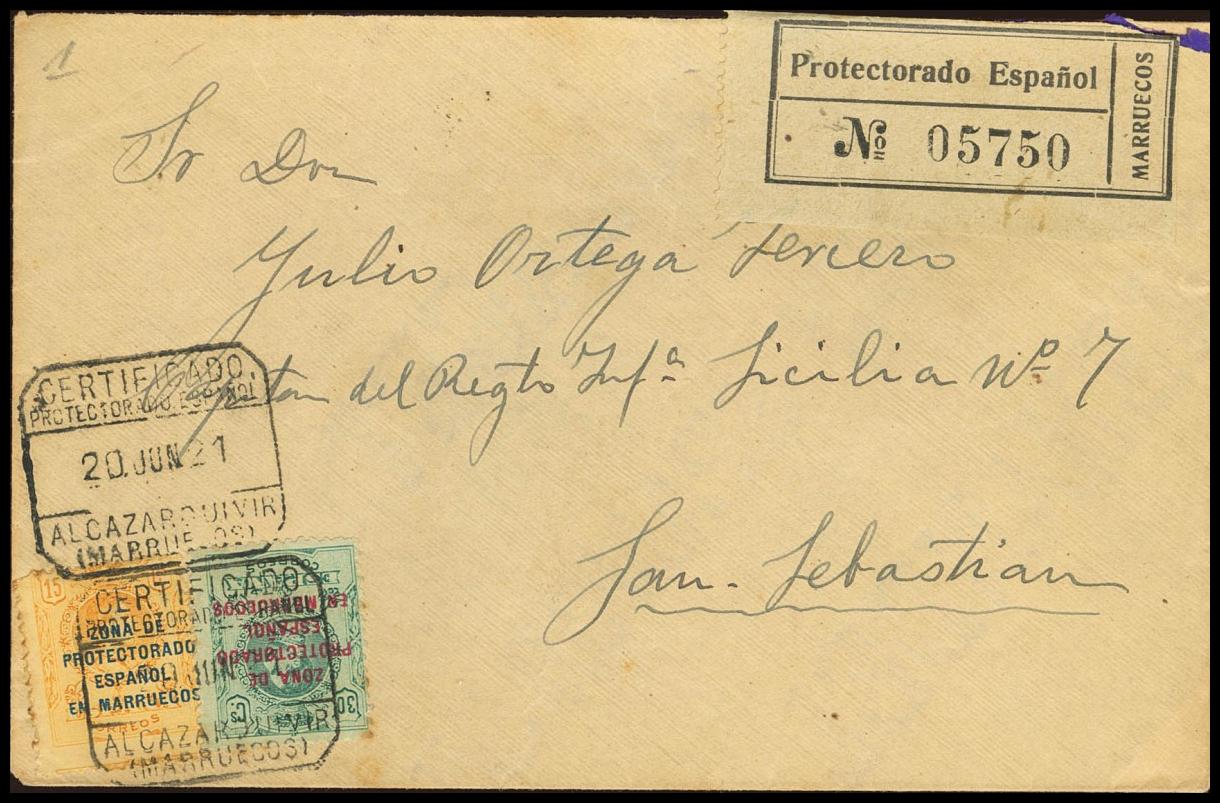 1
Protectorado Español
Nº 05750
MARRUECOS
Sr Don
Julio Ortega Tercero
Capitan del Regto Infª Sicilia Nº 7
San. Sebastian
CERTIFICADO.
PROTECTORADO ESPAÑOL
20 JUN 21
ALCAZARQUIVIR
(MARRUECOS)
15
ZONA DE
PROTECTORADO
ESPAÑOL
EN MARRUECOS
CORREOS
ZONA DE
PROTECTORADO
ESPAÑOL
EN MARRUECOS
30 Cs
CERTIFICADO
PROTECTORADO ESPAÑOL
20 JUN
ALCAZARQUIVIR
(MARRUECOS)